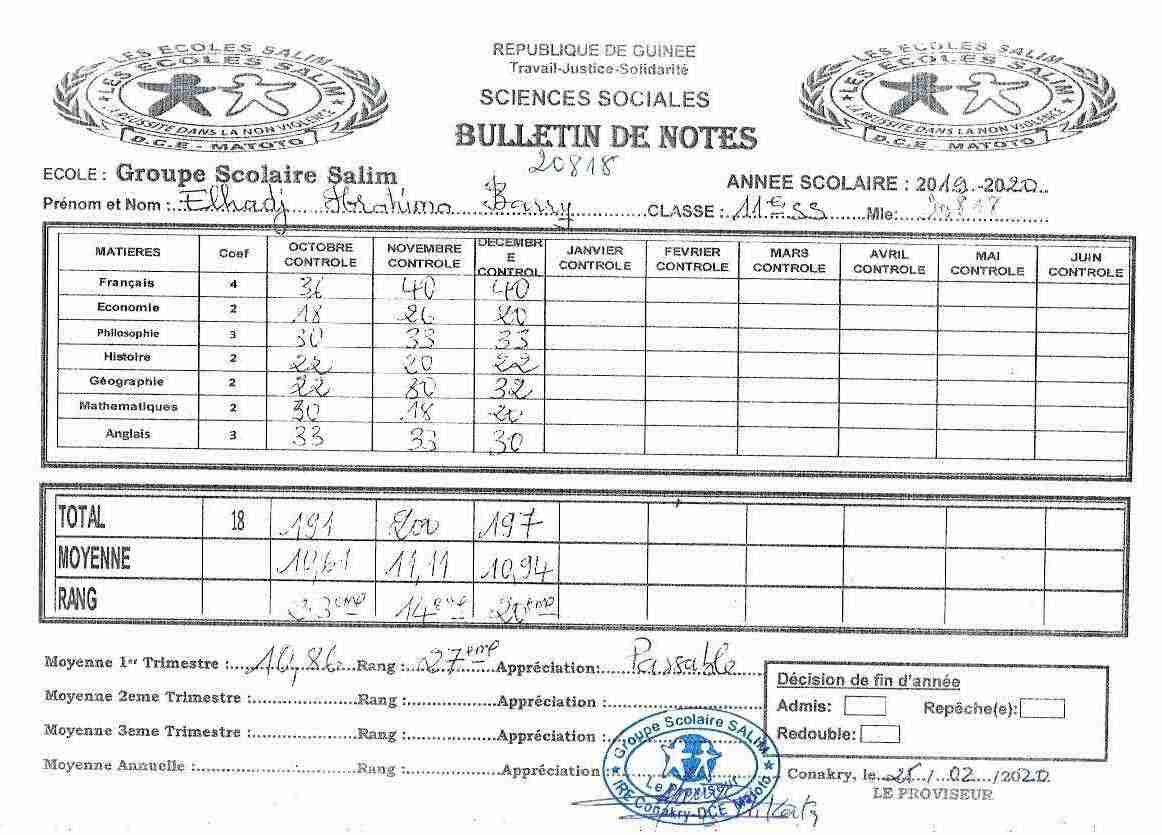 LES ECOLES SALIM
LES ECOLES SALIM
LA REUSSITE DANS LA NON VIOLENCE
D.C.E - MATOTO
REPUBLIQUE DE GUINEE
Travail-Justice-Solidarité
SCIENCES SOCIALES
BULLETIN DE NOTES
20818
LES ECOLES SALIM
LES ECOLES SALIM
LA REUSSITE DANS LA NON VIOLENCE
D.C.E - MATOTO
ECOLE : Groupe Scolaire Salim
ANNEE SCOLAIRE : 2019-2020
Prénom et Nom : Elhadj Ibrahima Barry CLASSE : 11e SS Mle: 20818
MATIERES Coef OCTOBRE CONTROLE NOVEMBRE CONTROLE DECEMBR E CONTROL JANVIER CONTROLE FEVRIER CONTROLE MARS CONTROLE AVRIL CONTROLE MAI CONTROLE JUIN CONTROLE
Français 4 36 40 40
Economie 2 18 26 20
Philosophie 3 30 33 33
Histoire 2 22 20 22
Géographie 2 22 30 32
Mathematiques 2 30 18 20
Anglais 3 33 33 30
TOTAL 18 191 200 197
MOYENNE 10,61 11,11 10,94
RANG 23ème 14ème
Moyenne 1er Trimestre : 10,86 Rang : 27ème Appréciation: Passable
Moyenne 2eme Trimestre : Rang : Appréciation :
Moyenne 3eme Trimestre : Rang : Appréciation :
Moyenne Annuelle : Rang : Appréciation
Décision de fin d'année
Admis: Repêche(e):
Redouble:
Groupe Scolaire SALIM
Le Proviseur
IRE Conakry-DCE Matoto
Conakry, le 25/02/2020
LE PROVISEUR